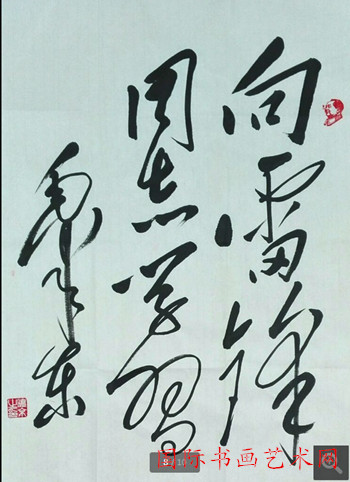 向雷锋
同志学习
毛泽东
国际书画艺术网